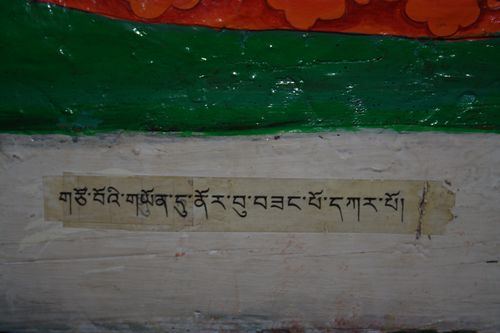 གཙོ་བོའི་གཡོན་དུ་ནོར་བུ་བཟང་པོ་དཀར་པོ།